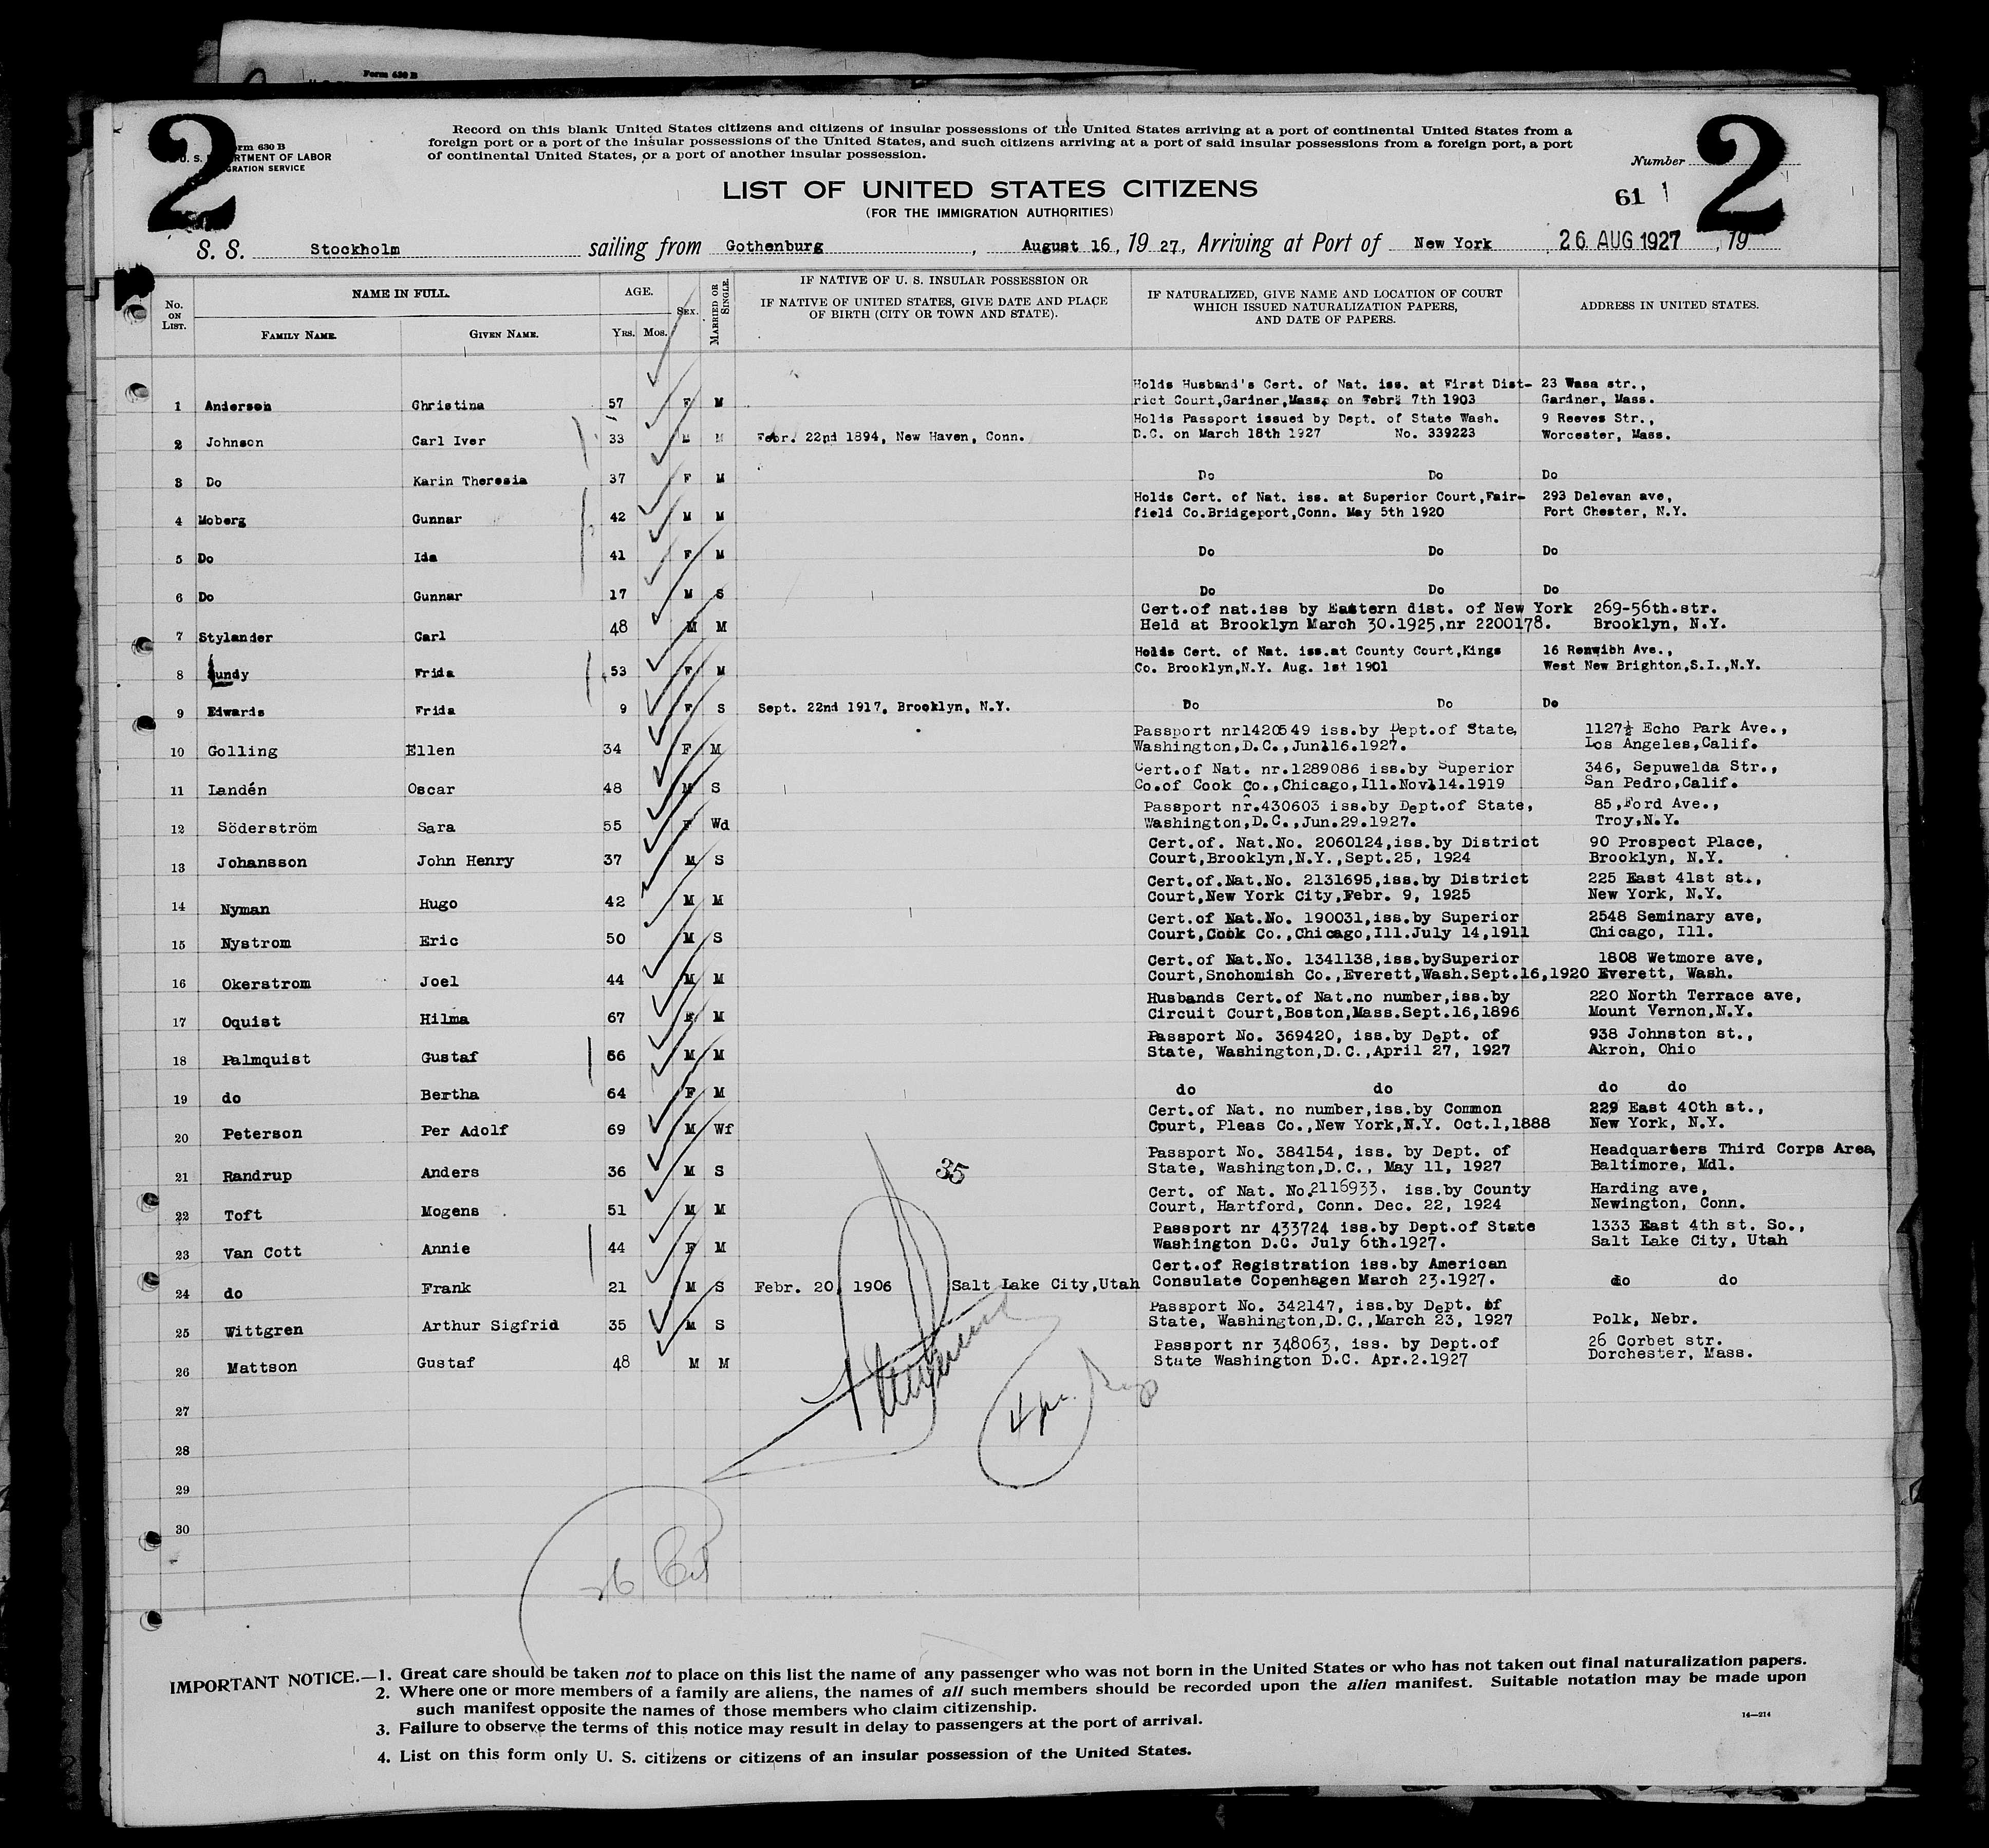 Form 630 B
2
Form 630 B
U. S. DEPARTMENT OF LABOR
IMMIGRATION SERVICE
Record on this blank United States citizens and citizens of insular possessions of the United States arriving at a port of continental United States from a
foreign port or a port of the insular possessions of the United States, and such citizens arriving at a port of said insular possessions from a foreign port, a port
of continental United States, or a port of another insular possession.
Number
2
61
LIST OF UNITED STATES CITIZENS
(FOR THE IMMIGRATION AUTHORITIES)
S. S. Stockholm sailing from Gothenburg, August 16, 1927, Arriving at Port of New York 26 AUG 1927, 19
No. ON LIST. NAME IN FULL. AGE. SEX. MARRIED OR SINGLE. IF NATIVE OF U. S. INSULAR POSSESSION OR IF NATIVE OF UNITED STATES, GIVE DATE AND PLACE OF BIRTH (CITY OR TOWN AND STATE). IF NATURALIZED, GIVE NAME AND LOCATION OF COURT WHICH ISSUED NATURALIZATION PAPERS, AND DATE OF PAPERS. ADDRESS IN UNITED STATES.
FAMILY NAME. GIVEN NAME. YRS. MOS.
Holds Husband's Cert. of Nat. iss. at First Dist- 23 Wasa str.,
1 Anderson Christina 57 F M rict Court,Gardner,Mass. on Febr. 7th 1903 Gardner, Mass.
Holds Passport issued by Dept. of State Wash. 9 Reeves Str.,
2 Johnson Carl Iver 33 M M Febr. 22nd 1894, New Haven, Conn. D.C. on March 18th 1927 No. 339223 Worcester, Mass.
3 Do Karin Theresia 37 F M Do Do Do
Holds Cert. of Nat. iss. at Superior Court,Fair- 293 Delevan ave,
4 Moberg Gunnar 42 M M field Co.Bridgeport,Conn. May 5th 1920 Port Chester, N.Y.
5 Do Ida 41 F M Do Do Do
6 Do Gunnar 17 M S Do Do Do
Cert.of nat.iss by Eastern dist. of New York 269-56th.str.
7 Stylander Carl 48 M M Held at Brooklyn March 30.1925,nr 2200178. Brooklyn, N.Y.
Holds Cert. of Nat. iss.at County Court,Kings 16 Renwibh Ave.,
8 Lundy Frida 53 F M Co. Brooklyn,N.Y. Aug. 1st 1901 West New Brighton,S.I.,N.Y.
9 Edwards Frida 9 F S Sept. 22nd 1917, Brooklyn, N.Y. Do Do Do
Passport nr1420549 iss.by Dept.of State, 1127½ Echo Park Ave.,
10 Golling Ellen 34 F M Washington,D.C.,Jun116.1927. Los Angeles,Calif.
Cert.of Nat. nr.1289086 iss.by Superior 346, Sepuwelda Str.,
11 Landén Oscar 48 M S Co.of Cook Co.,Chicago,Ill.Nov.14.1919 San Pedro,Calif.
Passport nr.430603 iss.by Dept.of State, 85,Ford Ave.,
12 Söderström Sara 55 F Wd Washington,D.C.,Jun.29.1927. Troy,N.Y.
Cert.of. Nat.No. 2060124,iss.by District 90 Prospect Place,
13 Johansson John Henry 37 M S Court,Brooklyn,N.Y.,Sept.25, 1924 Brooklyn, N.Y.
Cert.of.Nat.No. 2131695,iss.by District 225 East 41st st.,
14 Nyman Hugo 42 M M Court,New York City,Febr. 9, 1925 New York, N.Y.
Cert.of Nat.No. 190031,iss.by Superior 2548 Seminary ave,
15 Nystrom Eric 50 M S Court,Cook Co.,Chicago,Ill.July 14,1911 Chicago, Ill.
Cert.of Nat.No. 1341138,iss.bySuperior 1808 Wetmore ave,
16 Okerstrom Joel 44 M M Court,Snohomish Co.,Everett,Wash.Sept.16,1920 Everett, Wash.
Husbands Cert.of Nat.no number,iss.by 220 North Terrace ave,
17 Oquist Hilma 67 F M Circuit Court,Boston,Mass.Sept.16,1896 Mount Vernon,N.Y.
Passport No. 369420, iss.by Dept. of 938 Johnston st.,
18 Palmquist Gustaf 66 M M State, Washington,D.C.,April 27, 1927 Akron, Ohio
19 do Bertha 64 F M do do do do
Cert.of Nat. no number,iss.by Common 229 East 40th st.,
20 Peterson Per Adolf 69 M Wf Court, Pleas Co.,New York,N.Y. Oct.1,1888 New York, N.Y.
Passport No. 384154, iss. by Dept. of Headquarters Third Corps Area,
21 Randrup Anders 36 M S 35 State, Washington,D.C., May 11, 1927 Baltimore, Mdl.
Cert. of Nat. No.2116933. iss.by County Harding ave,
22 Toft Mogens 51 M M Court, Hartford, Conn. Dec. 22, 1924 Newington, Conn.
Passport nr 433724 iss.by Dept.of State 1333 East 4th st. So.,
23 Van Cott Annie 44 F M Washington D.C. July 6th.1927. Salt Lake City, Utah
Cert.of Registration iss.by American
24 do Frank 21 M S Febr. 20, 1906 Salt Lake City,Utah Consulate Copenhagen March 23.1927. do do
Passport No. 342147, iss.by Dept. of
25 Wittgren Arthur Sigfrid 35 M S State, Washington,D.C.,March 23, 1927 Polk, Nebr.
Passport nr 348063, iss. by Dept.of 26 Corbet str.
26 Mattson Gustaf 48 M M State Washington D.C. Apr.2.1927 Dorchester, Mass.
27
28
29
30
26 Cit
IMPORTANT NOTICE.—1. Great care should be taken not to place on this list the name of any passenger who was not born in the United States or who has not taken out final naturalization papers.
2. Where one or more members of a family are aliens, the names of all such members should be recorded upon the alien manifest. Suitable notation may be made upon
such manifest opposite the names of those members who claim citizenship.
3. Failure to observe the terms of this notice may result in delay to passengers at the port of arrival.
14—214
4. List on this form only U. S. citizens or citizens of an insular possession of the United States.